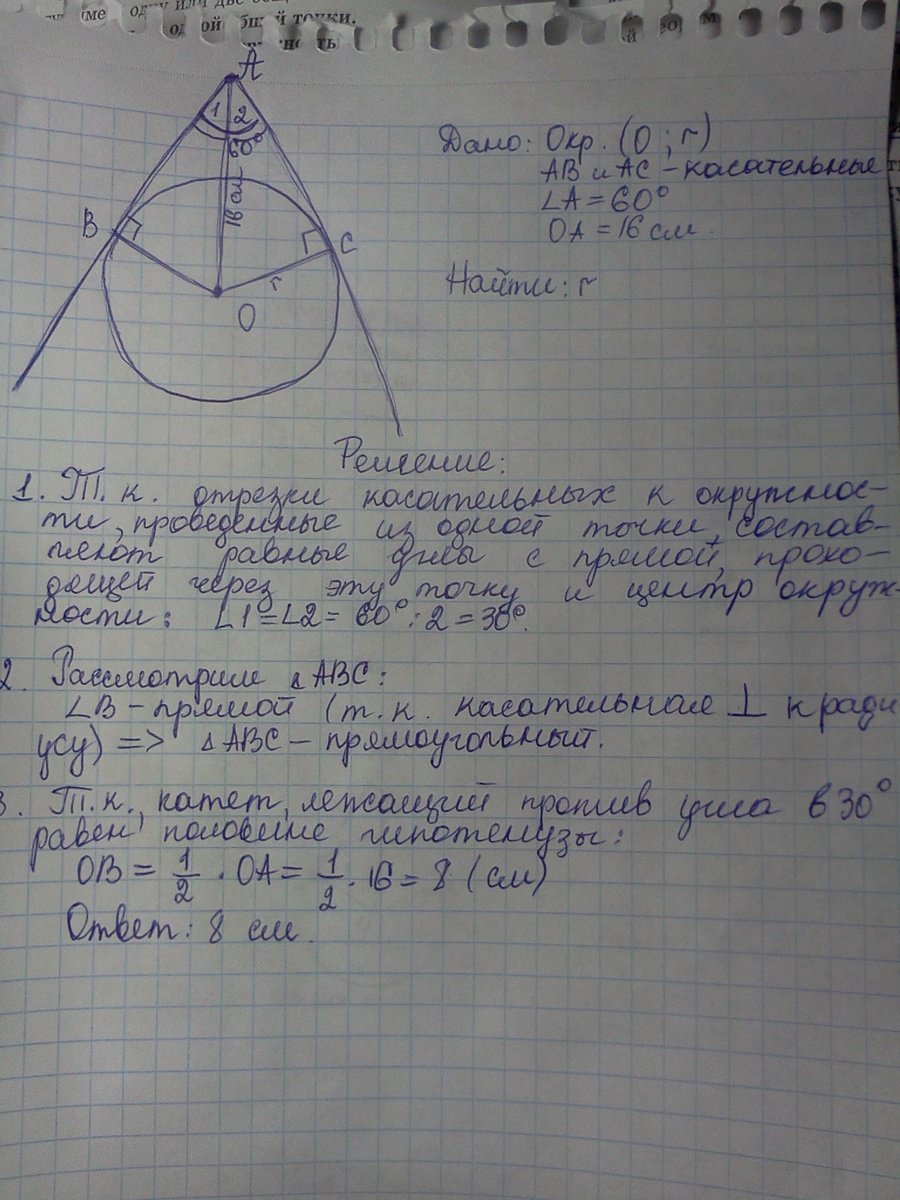 одной общей точки.
A
1 2
60°
16 см
B
C
r
O
Дано: Окр. (O ; r)
AB и AC – касательные
∠A = 60°
OA = 16 см.
Найти: r
Решение:
1. Т. к. отрезки касательных к окружнос-
ти, проведенные из одной точки, состав-
ляют равные углы с прямой, прохо-
дящей через эту точку и центр окруж-
ности: ∠1=∠2= 60° : 2 = 30°.
2. Рассмотрим ▵ABC:
∠B – прямой (т. к. касательная ⊥ к ради
усу) => ▵ABC – прямоугольный.
3. Т. к., катет, лежащий против угла в 30°
равен половине гипотенузы:
OB = 1/2 · OA = 1/2 · 16 = 8 (см)
Ответ: 8 см.